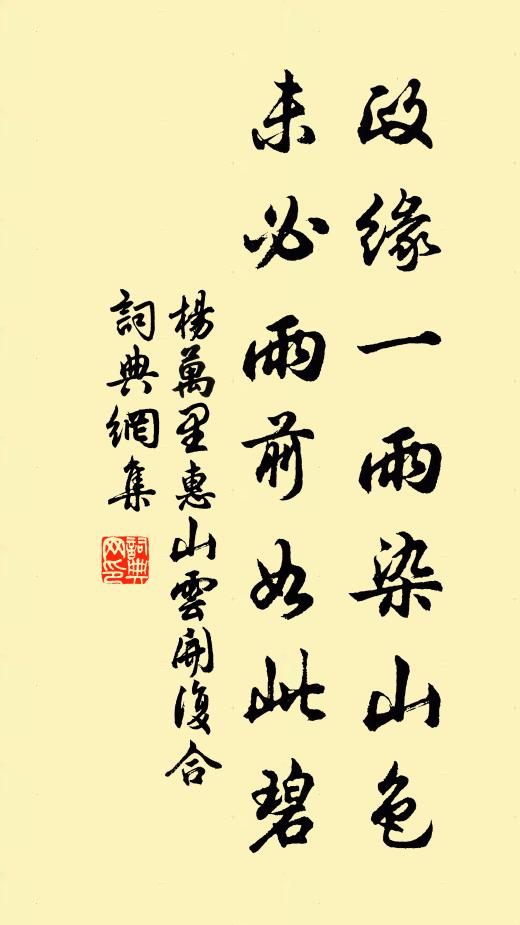 政緣一雨染山色
未必雨前如此碧
楊萬里惠山雲開復合
詞典網集
詞典网印